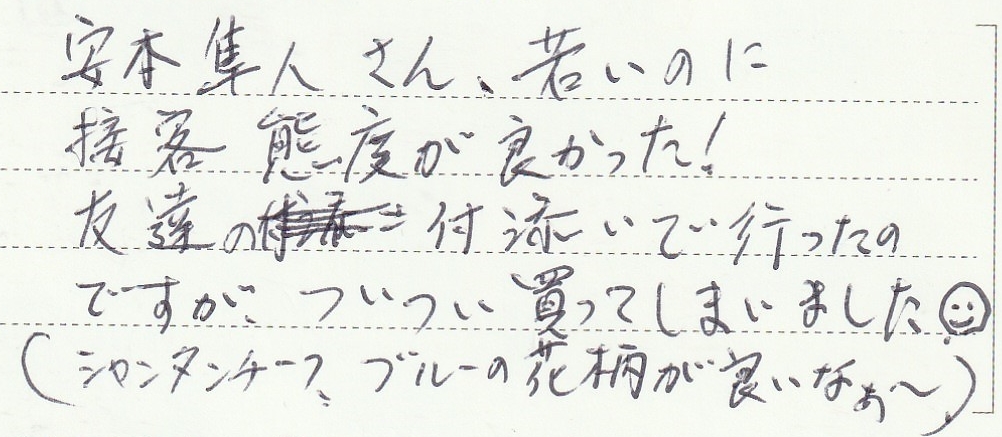 安本隼人さん、若いのに
接客態度が良かった!
友達の付添いで行ったの
ですが、ついつい買ってしまいました☺
(シャンタンチーフ、ブルーの花柄が良いなぁ〜)